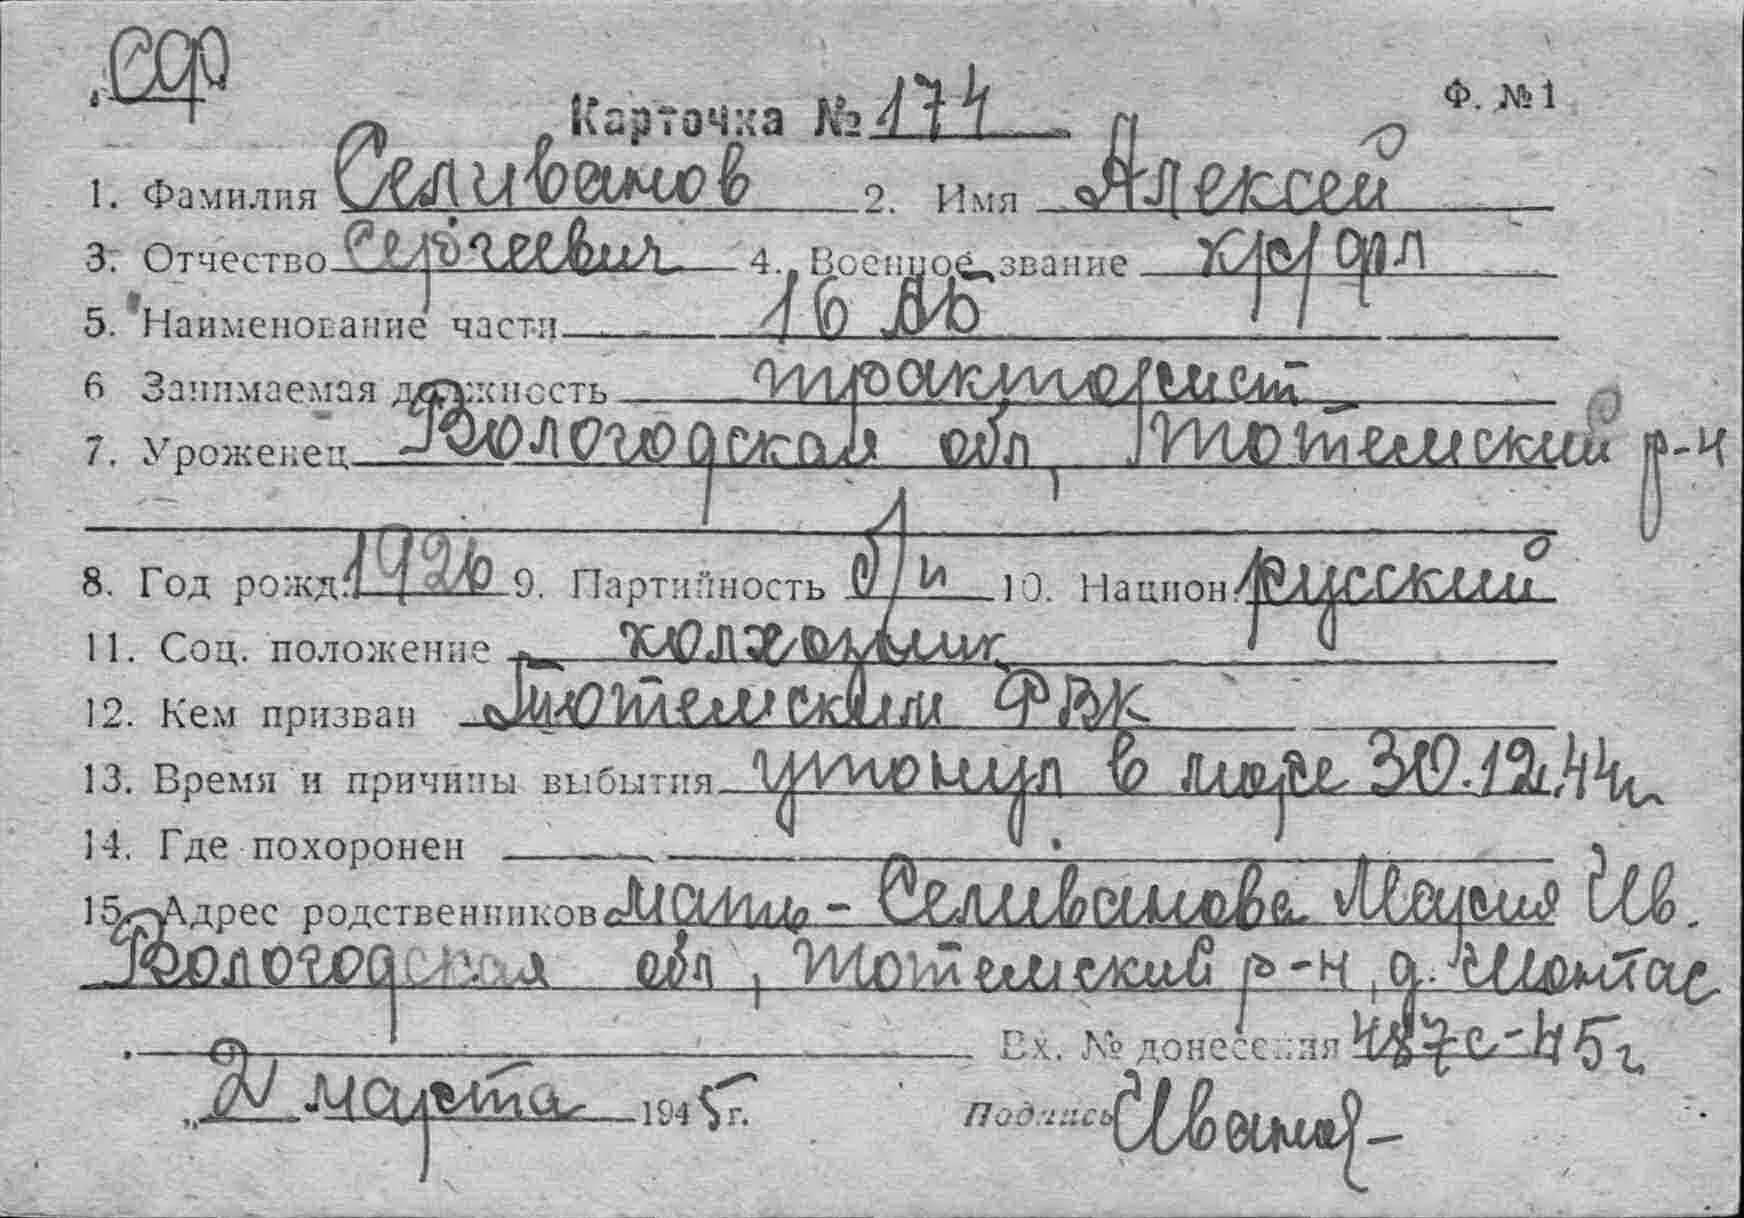 СФ
Ф. №1
Карточка № 174
1. Фамилия Селиванов 2. Имя Алексей
3. Отчество Сергеевич 4. Военное звание кр/фл
5. Наименование части 16
6 Занимаемая должность тракторист
7. Уроженец Вологодская обл, Тотемский р-н
8. Год рожд. 1926 9. Партийность б/п 10. Национ. русский
11. Соц. положение колхозник
12. Кем призван Тотемским РВК
13. Время и причины выбытия утонул в море 30.12.44г.
14. Где похоронен
15. Адрес родственников мать - Селиванова Мария Ив.
Вологодская обл, Тотемский р-н, д.
Вх. № донесения 487с-45г
„2 марта 1945г. Подпись Иванов